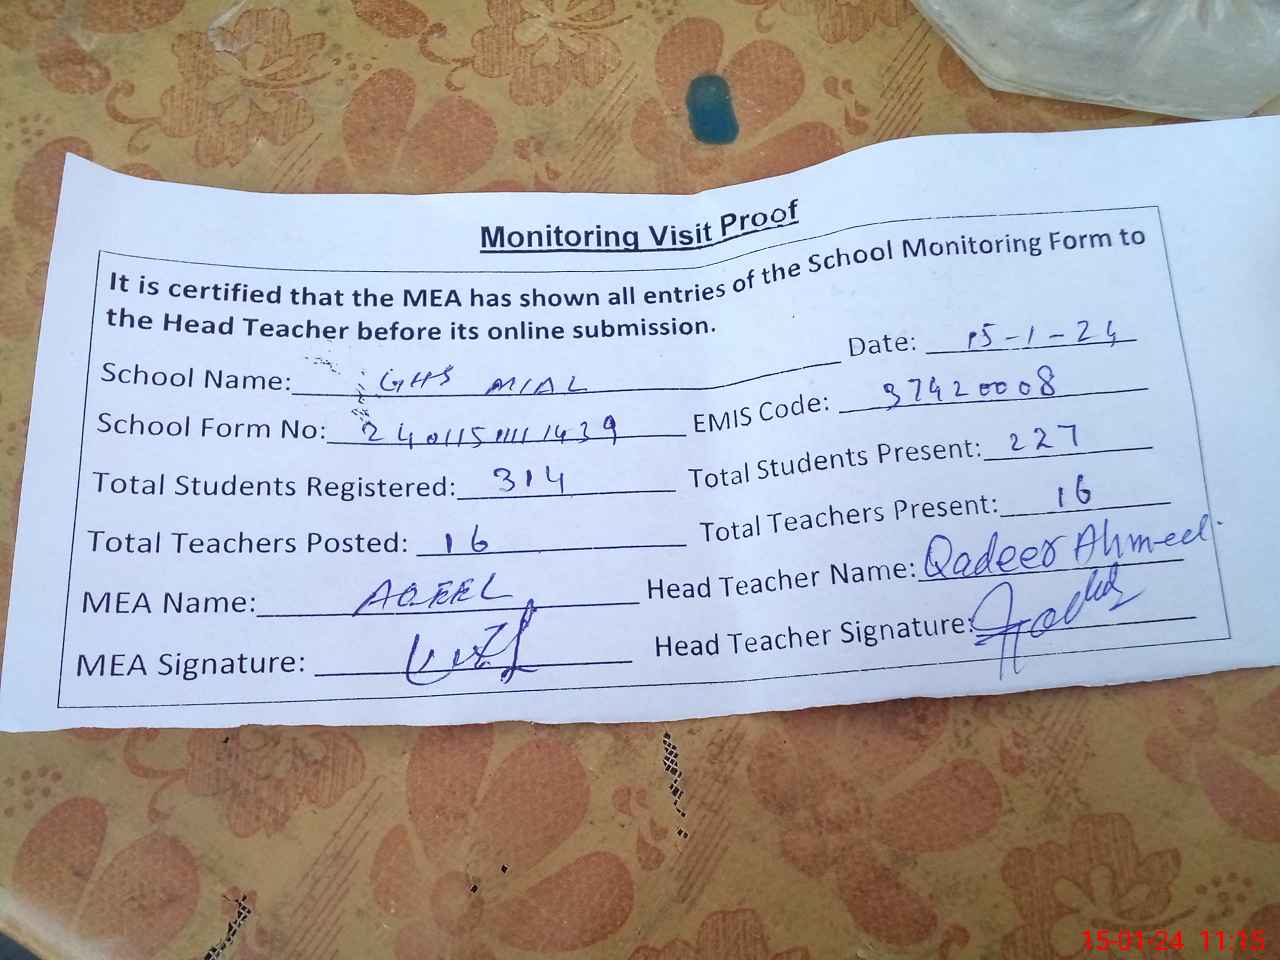 Monitoring Visit Proof
It is certified that the MEA has shown all entries of the School Monitoring Form to
the Head Teacher before its online submission.
School Name: GHS MIAL Date: 15-1-24
School Form No: 240115111111439 EMIS Code: 37420008
Total Students Registered: 314 Total Students Present: 227
Total Teachers Posted: 16 Total Teachers Present: 16
MEA Name: AQEEL Head Teacher Name: Qadeer Ahmed
MEA Signature: Head Teacher Signature:
15-01-24 11:15